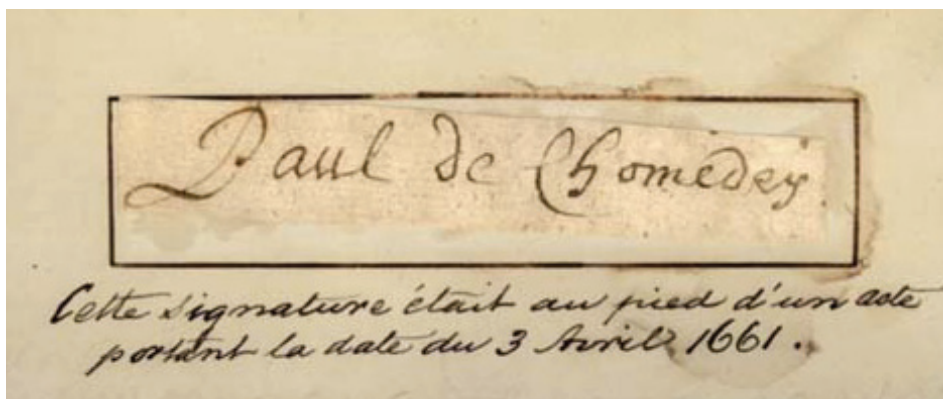 Paul de Chomedey
Cette signature était au pied d'un acte
portant la date du 3 Avril 1661.